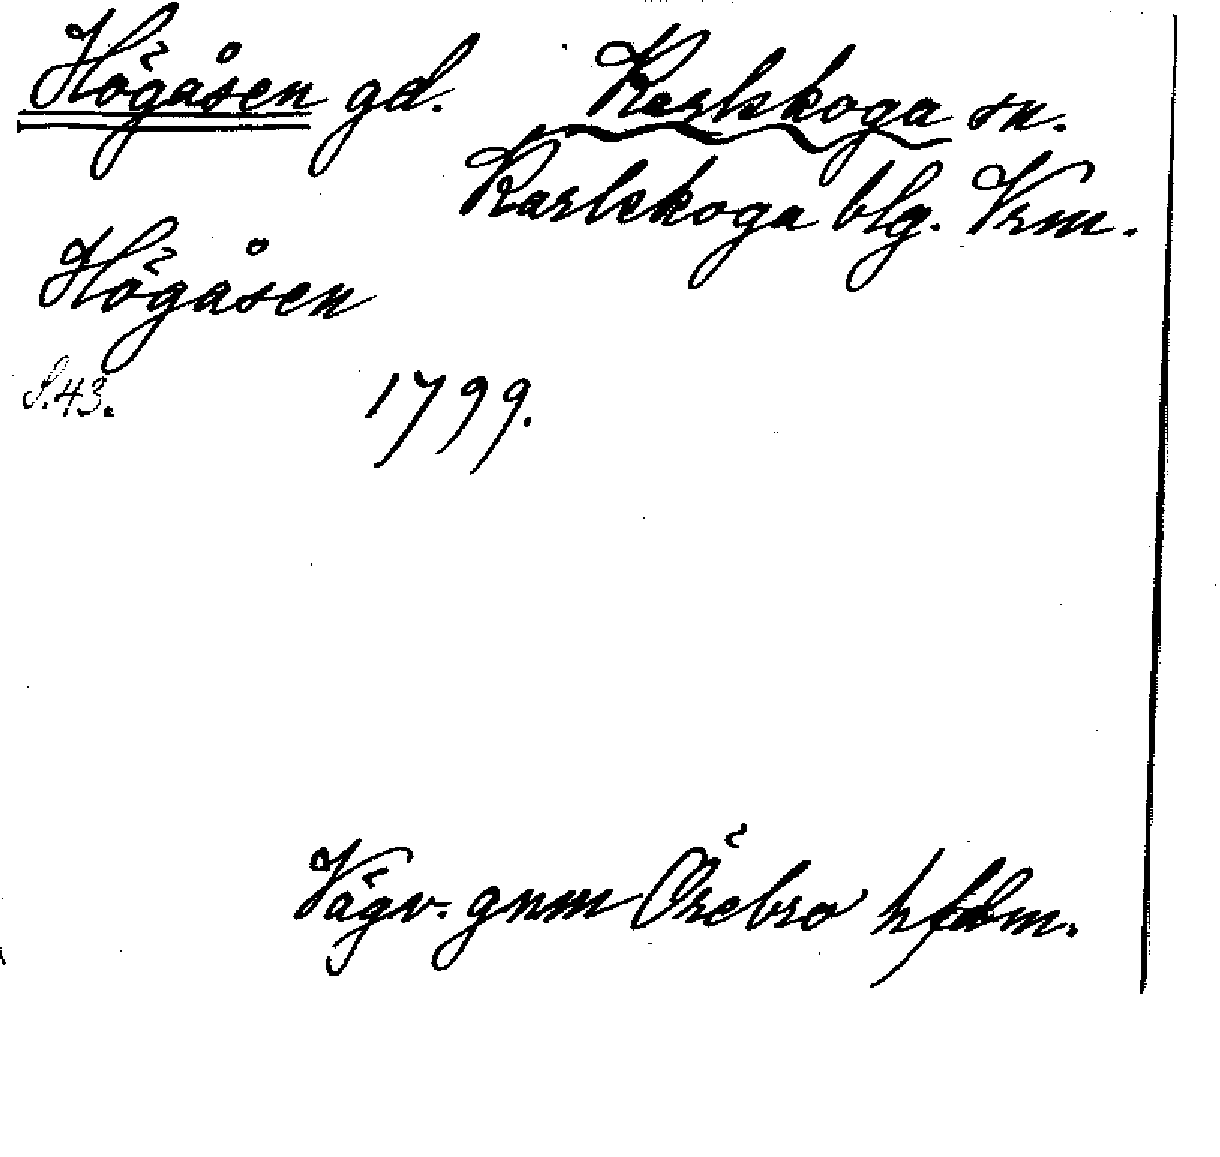 Högåsen gd. Karlskoga sn.
Karlskoga blg. Vrm.
Högåsen
S.43. 1799.
Vägv. gnm Örebro hfdm.